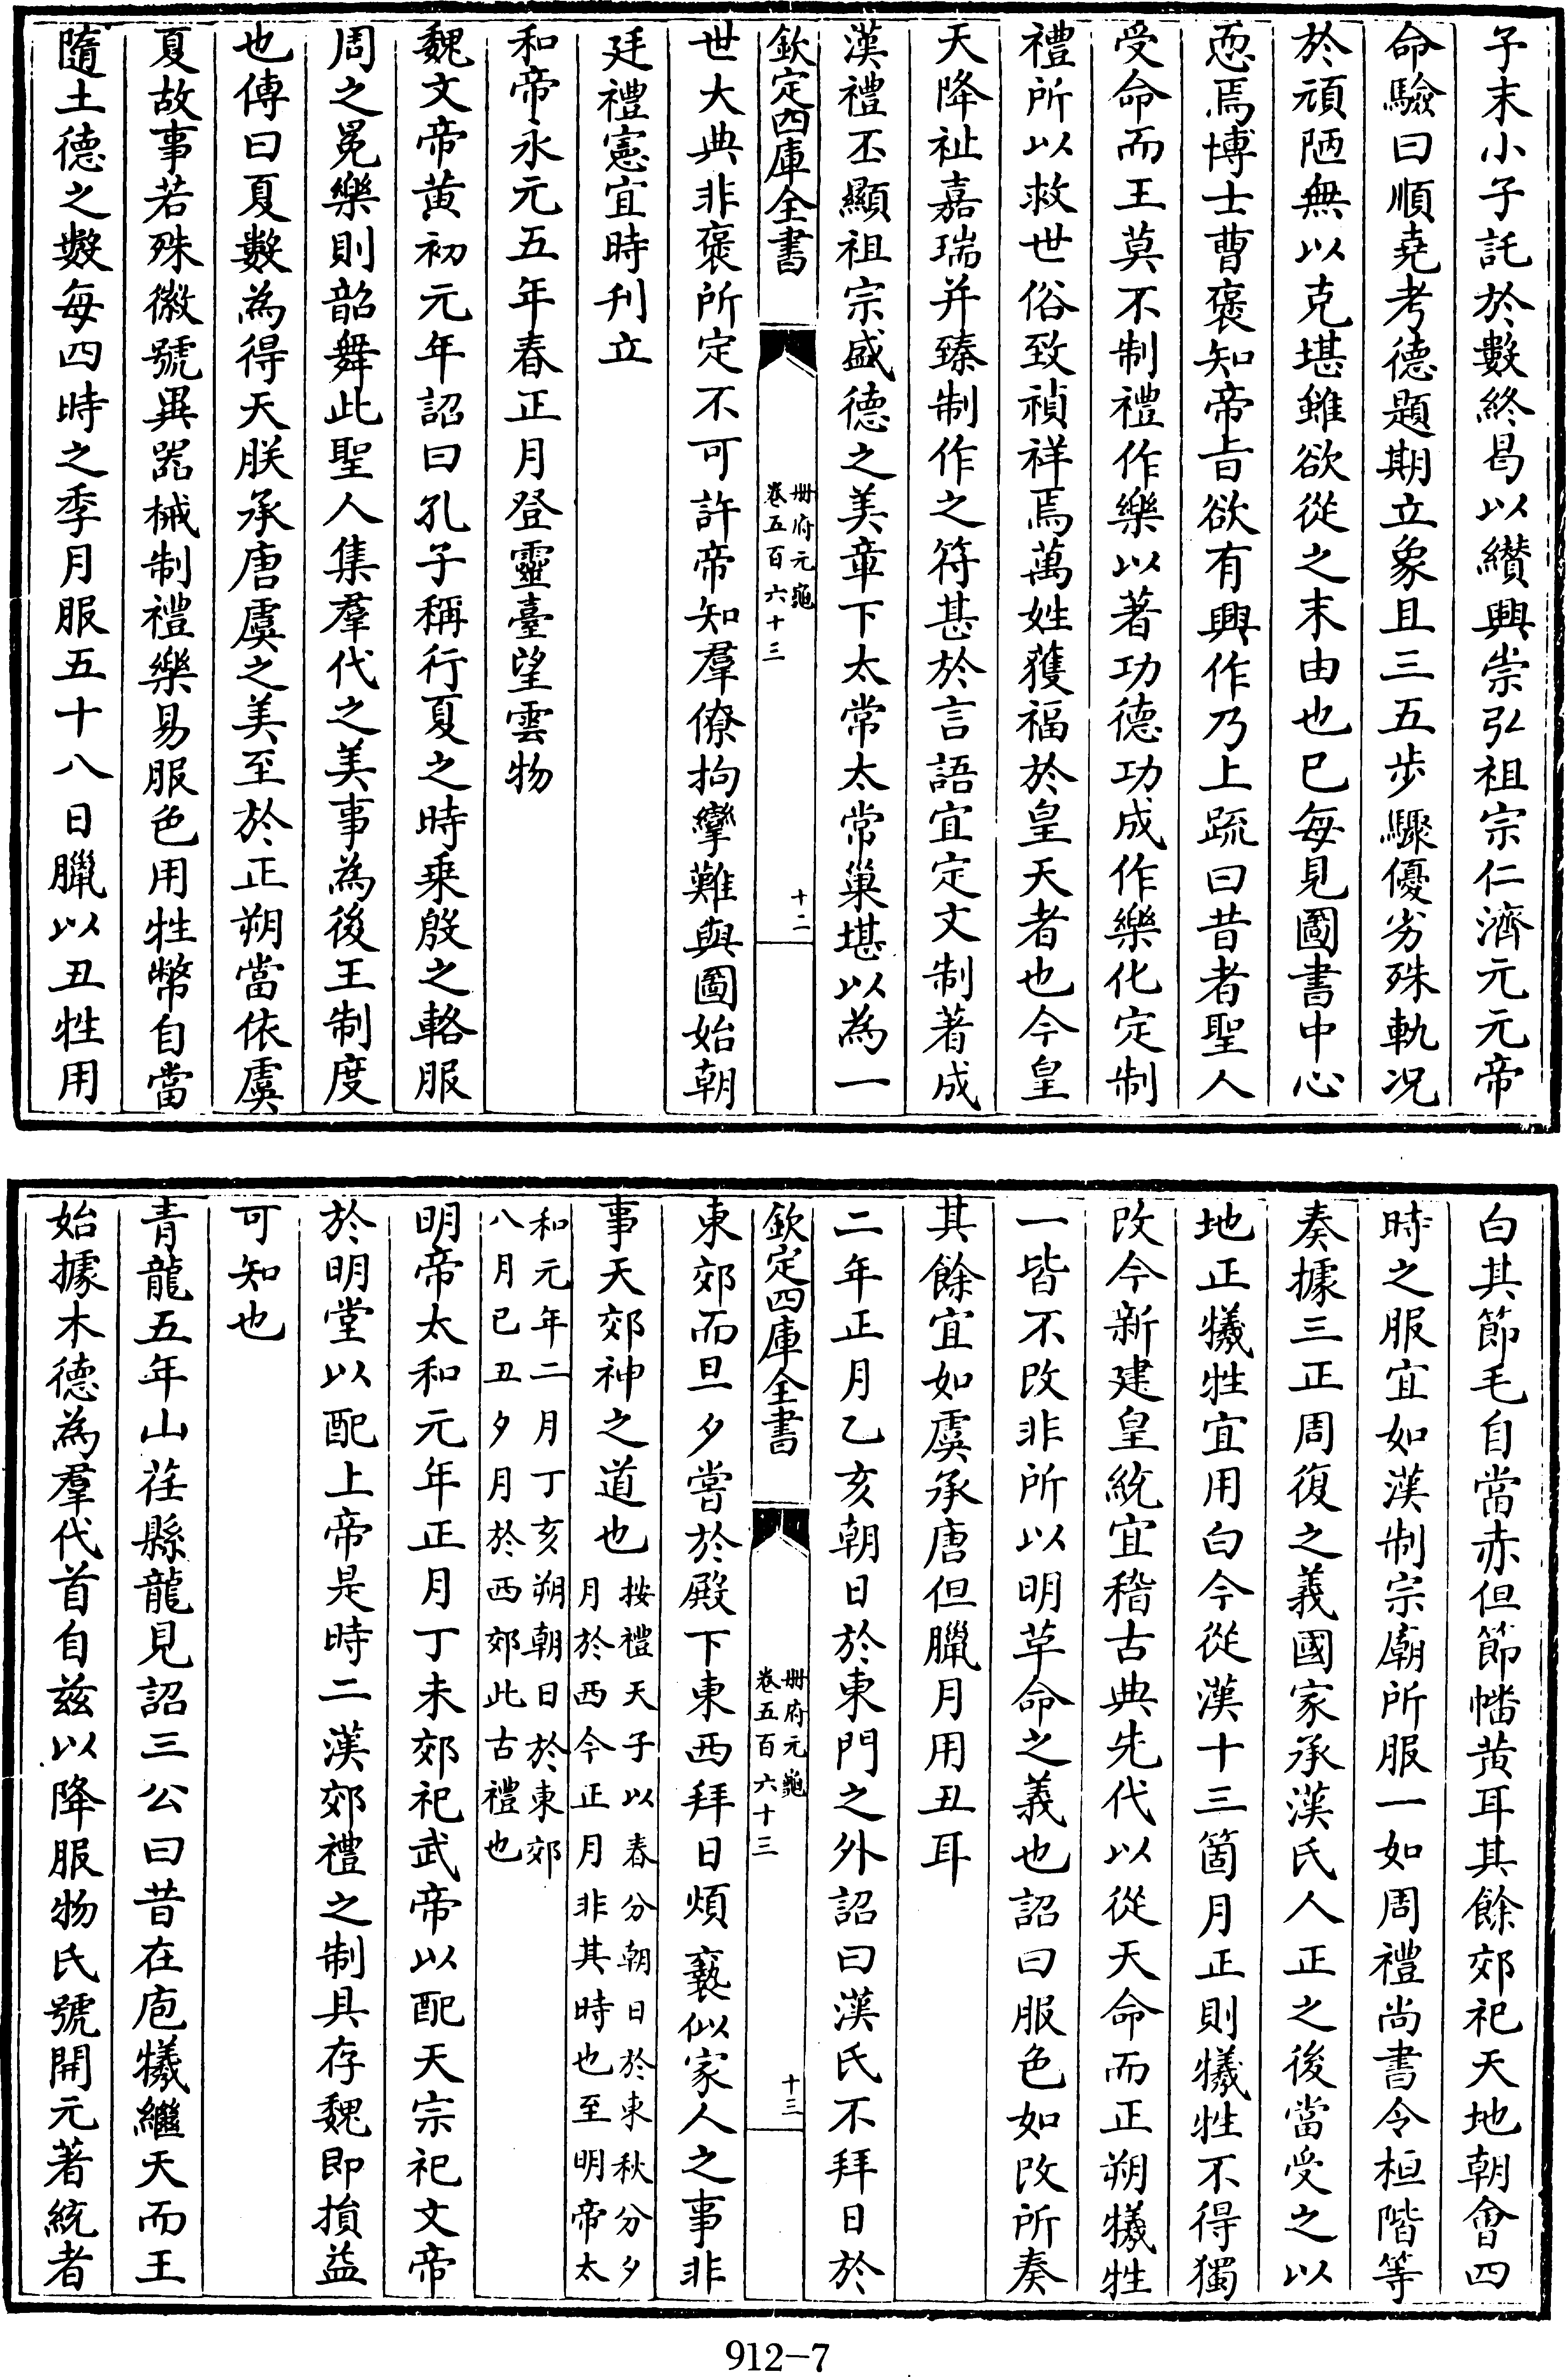 子末小子託於數終曷以纉興崇弘祖宗仁濟元元帝
命驗曰順堯考德題期立象且三五步驟優劣殊軌况
於頑陋無以克堪雖欲從之末由也已每見圖書中心
恧焉博士曹褒知帝旨欲有興作乃上疏曰昔者聖人
受命而王莫不制禮作樂以著功德功成作樂化定制
禮所以救世俗致禎祥焉萬姓獲福於皇天者也今皇
天降祉嘉瑞并臻制作之符甚於言語宜定文制著成
漢禮丕顯祖宗盛德之美章下太常太常巢堪以為一
欽定四庫全書
冊府元龜
卷五百六十三
十二
世大典非褒所定不可許帝知羣僚拘攣難與圖始朝
廷禮憲宜時刋立
和帝永元五年春正月登靈臺望雲物
魏文帝黃初元年詔曰孔子稱行夏之時乘殷之輅服
周之冕樂則韶舞此聖人集羣代之美事為後王制度
也傳曰夏數為得天朕承唐虞之美至於正朔當依虞
夏故事若殊徽號異器械制禮樂易服色用牲幣自當
隨土德之數每四時之季月服五十八日臘以丑牲用
白其節毛自當赤但節幡黃耳其餘郊祀天地朝會四
時之服宜如漢制宗廟所服一如周禮尚書令桓階等
奏據三正周復之義國家承漢氏人正之後當受之以
地正犧牲宜用白今從漢十三箇月正則犧牲不得獨
改今新建皇統宜稽古典先代以從天命而正朔犧牲
一皆不改非所以明革命之義也詔曰服色如改所奏
其餘宜如虞承唐但臘月用丑耳
二年正月乙亥朝日於東門之外詔曰漢氏不拜日於
欽定四庫全書
冊府元龜
卷五百六十三
十三
東郊而旦夕嘗於殿下東西拜日煩褻似家人之事非
事天郊神之道也按禮天子以春分朝日於東秋分夕
月於西今正月非其時也至明帝太
和元年二月丁亥朔朝日於東郊
八月已丑夕月於西郊此古禮也
明帝太和元年正月丁未郊祀武帝以配天宗祀文帝
於明堂以配上帝是時二漢郊禮之制具存魏即損益
可知也
青龍五年山茌縣龍見詔三公曰昔在庖犧繼天而王
始據木德為羣代首自兹以降服物氏號開元著統者
912-7